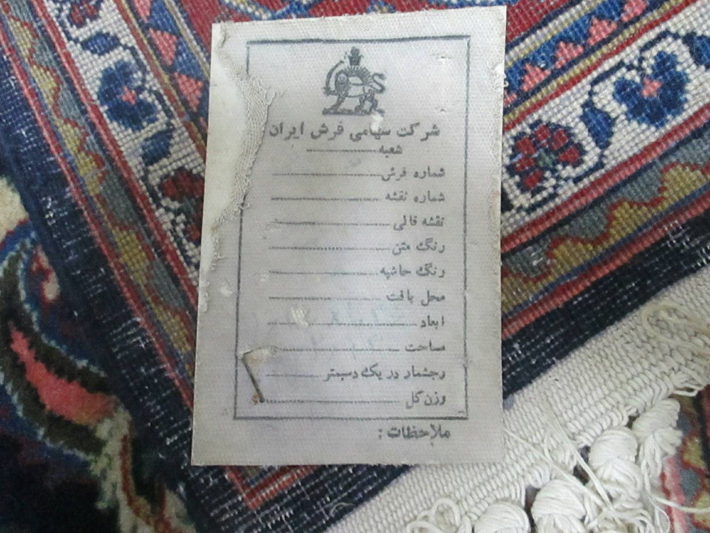 شرکت سهامی فرش ایران
شعبه
شماره فرش
شماره نقشه
نقشه قالی
رنگ متن
رنگ حاشیه
محل بافت
ابعاد
مساحت
رجشمار در یک دسیمتر
وزن کل
ملاحظات :